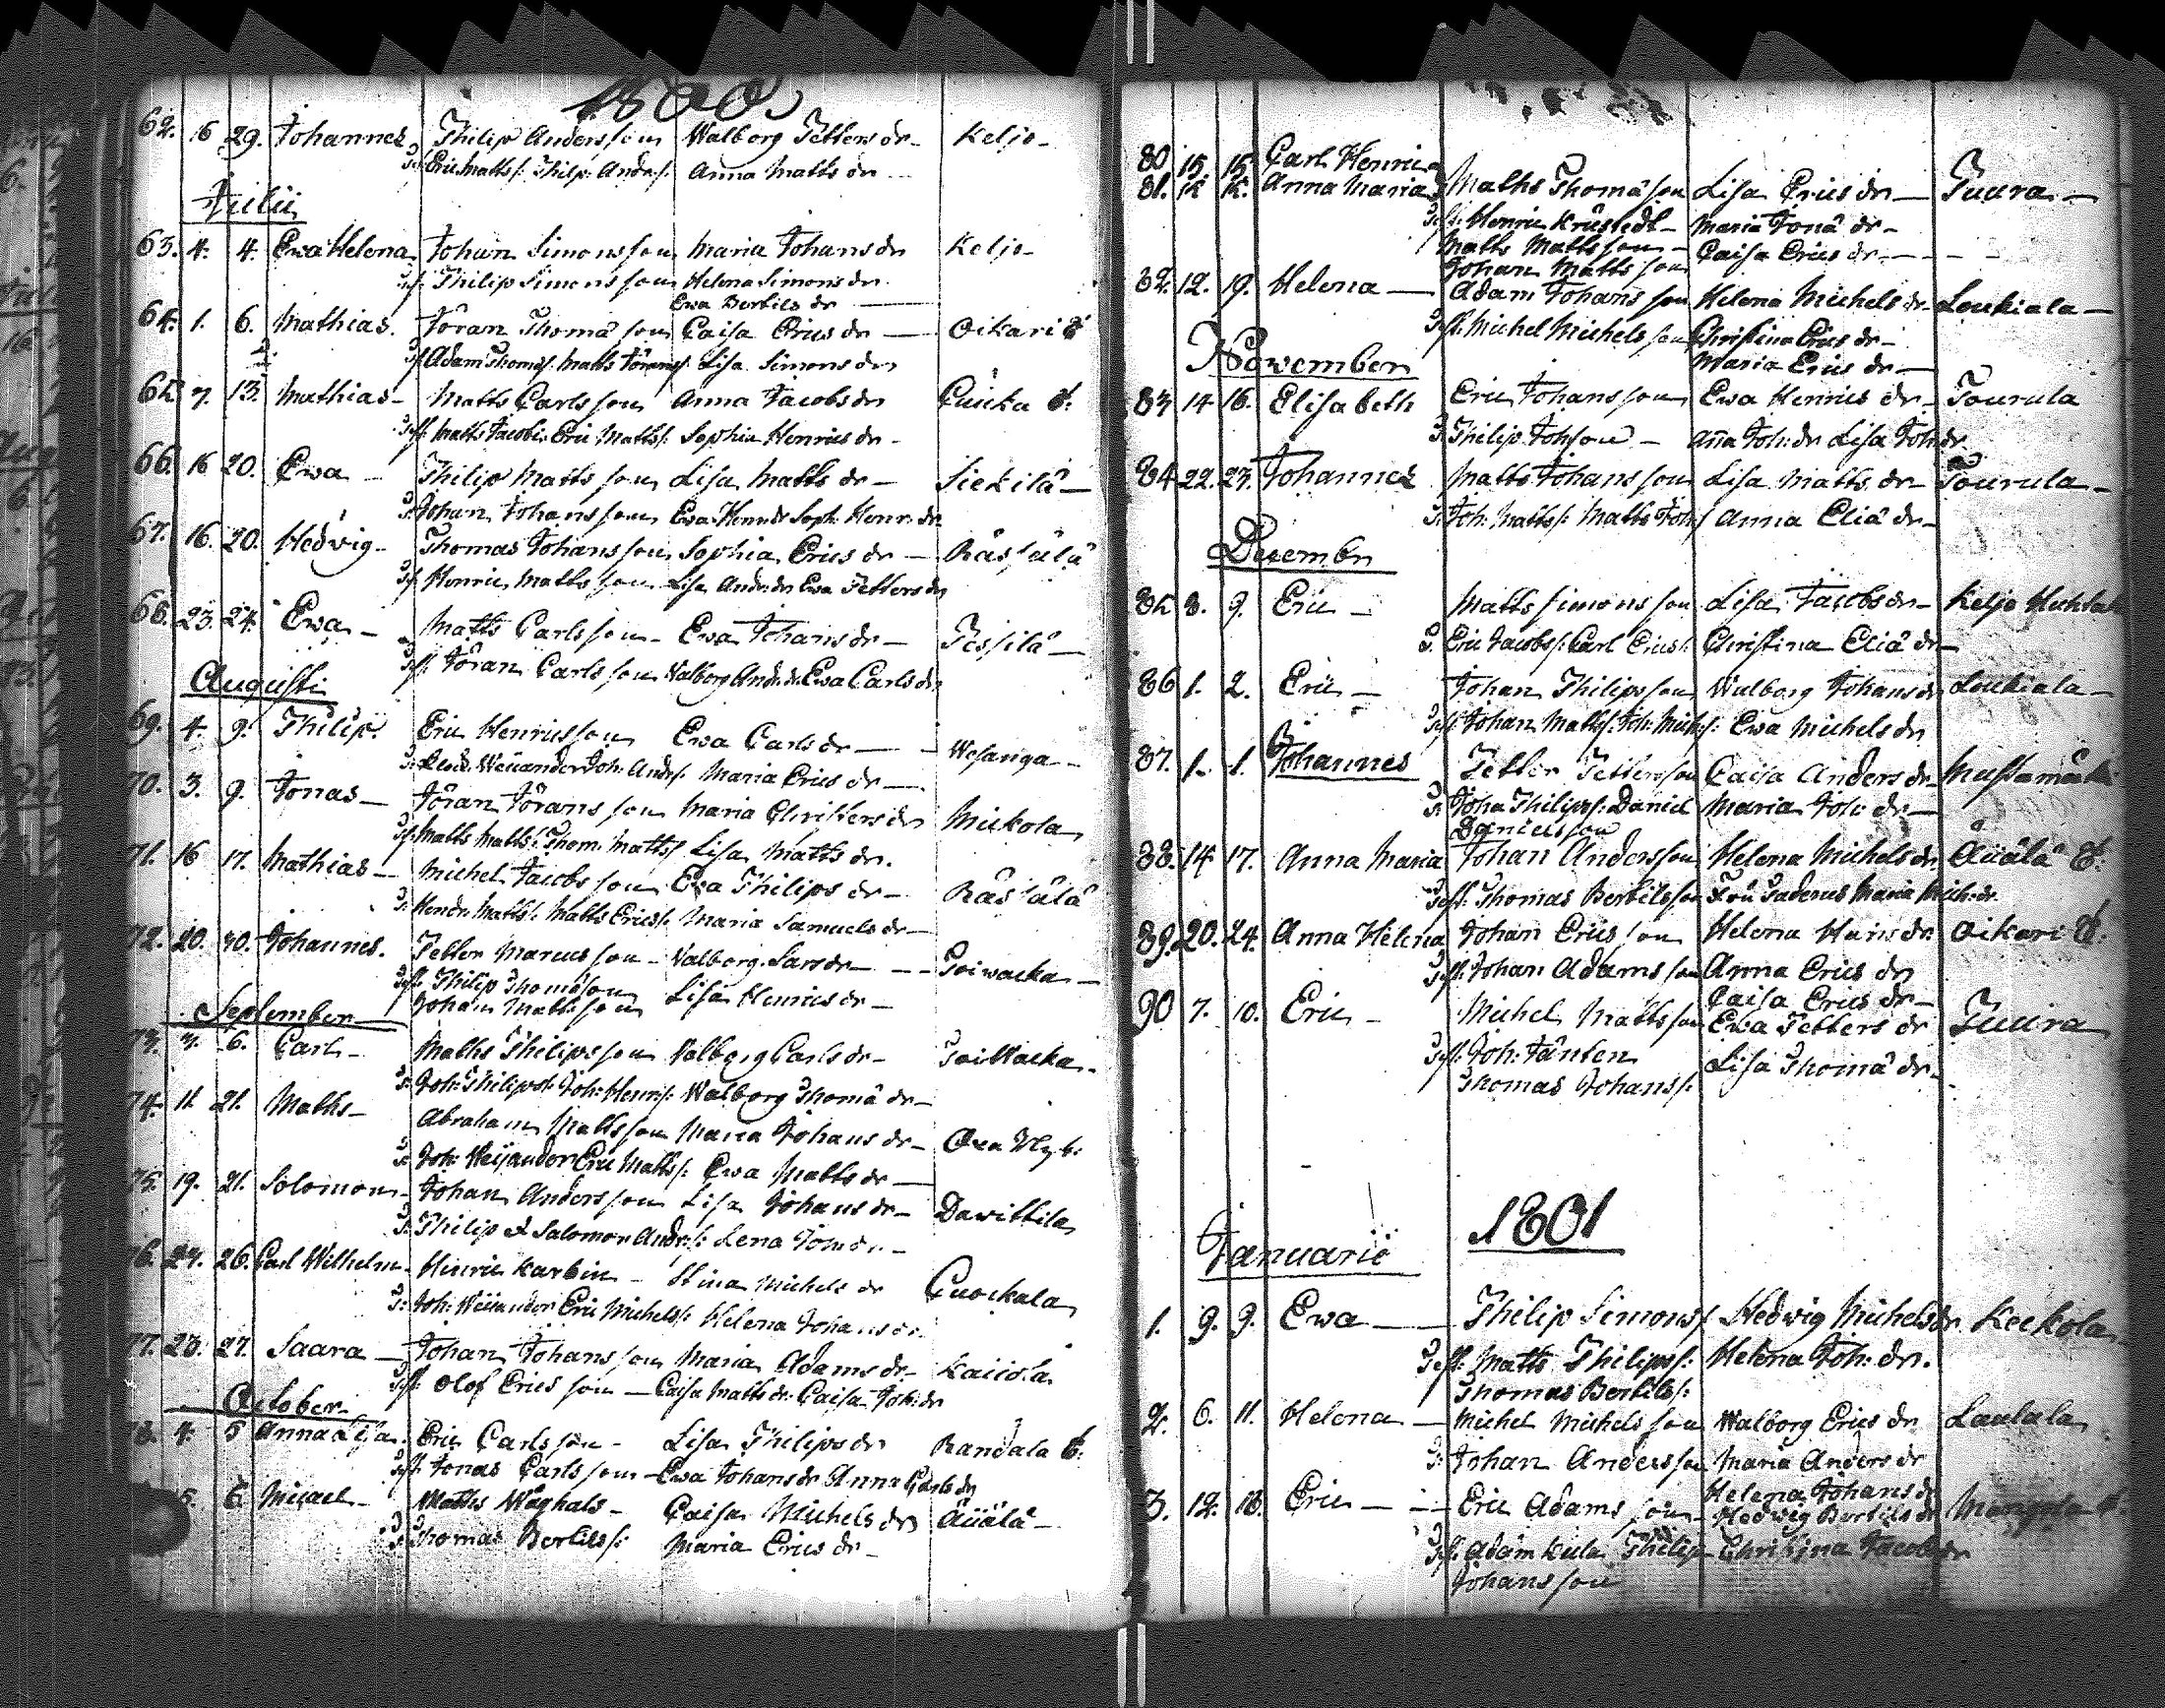 1800
62. 16 29. Johannes Philip Andersson Walborg Petters dr Keljo
Eric Matts s: Philp: Ands s: Anna Matts dr
Julii
63. 4. 4. Ewa Helena Johan Simonsson Maria Johans dr Keljo
Philip Simonsson Helena Simons dr
Ewa Bertils dr
64. 1. 6. Mathias. Jöran Thomæ son Caisa Erics dr Oikari
Adam Thomæ s: Matts Jörans s: Lisa Simons dr
65. 7. 13. Mathias Matts Carlsson Anna Jacobs dr
Matts Jacobs: Eric Matts s: Sophia Henrics dr
66. 16 20. Ewa Philip Mattsson Lisa Matts dr Siekilä
Johan Johansson Ewa Henr. dr Soph. Henr. dr
67. 16. 20. Hedvig Thomas Johansson Sophia Erics dr Räsälä
Henric Mattsson Lisa And: dr Ewa Petters dr
68. 23. 24. Ewa Matts Carlsson Ewa Johans dr Pessilä
Jöran Carlsson Walborg And: dr Ewa Carls dr
Augusti
69. 4. 9. Philip. Eric Henricsson Ewa Carls dr Wesanga
Weiiander Joh: Ands s: Maria Erics dr
70. 3. 9. Jonas Jöran Jöransson Maria Christers dr Mickola
Matts Matts s: Thom: Matts s: Lisa Matts dr.
71. 16 17. Mathias Michel Jacobsson Ewa Philips dr Räsälä
Hendr: Matts s: Matts Erics s: Maria Samuels dr
72. 20. 30. Johannes. Petter Marcusson Walborg Lars dr Toiwacka
Philip Thomæson Lisa Henrics dr
Johan Mattsson
September
73. 3. 6. Carl Maths Philipsson Walborg Carls dr Toiwacka
Joh: Philips s: Joh: Henr s: Walborg Thomæ dr
74. 11. 21. Maths Abraham Mattsson Maria Johans dr
Joh: Weijander Eric Matts s: Ewa Matts dr
75. 19. 21. Solomon Johan Andersson Lisa Johans dr Dawittila
Philip & Salomon Andr s: Lena
76. 24. 26. Carl Wilhelm Hinric Karbin Stina Michels dr Cuockala
Joh: Weiiander Eric Michels s: Helena Johans dr
77. 23. 27. Saara Johan Johansson Maria Adams dr
Olof Ericsson Caisa Matts dr: Caisa Joh: dr
October
78. 4. 5 Anna Lisa Eric Carlsson Lisa Philips dr Randala
Jonas Carlsson Ewa Johans dr Anna Carls dr
5. 6. Micael Maths Wåghals Caisa Michels dr Äijälä
Thomas Bertils s: Maria Erics dr
80 15 15 Carl Henric
81. 15 15. Anna Maria Maths Thomæson Lisa Erics dr Tuura
Henric Krustedt Maria Jonæ dr
Matts Mattsson Caisa Erics dr
Johan Mattsson
82. 12. 19. Helena Adam Johansson Helena Michels dr Loukiala
Michel Michelsson Christina Erics dr
Maria Erics dr
November
83 14 16. Elisabeth Eric Johansson Ewa Henrics dr Tourula
Philip Johson Anna Joh: dr Lisa Joh: dr
84 22. 23. Johannes Matts Johansson Lisa Matts dr Tourula
Joh: Matts s: Matts Joh s: Anna Eliæ dr
Decembr
85 8. 9. Eric Matts Simonsson Lisa Jacobs dr Keljo
Eric Jacobs s: Carl Erics s: Christina Eliæ dr
86 1. 2. Eric Johan Philipsson Walborg Johans dr Loukiala
Johan Matts s: Joh: Mich s: Ewa Michels dr
87. 1. 1. Johannes Petter Pettersson Caisa Anders dr
Joha Philips s: Daniel Maria Joh: dr
Danielsson
88. 14 17. Anna Maria Johan Andersson Helena Michels dr Äijälä
Thomas Bertilsson Fru Maria Mich: dr
89. 20. 24. Anna Helena Johan Ericsson Helena Hans dr Oikari
Johan Adamsson Anna Erics dr
Caisa Erics dr
90 7. 10. Eric Michel Mattsson Ewa Petters dr Tuura
Joh: Jänten Lisa Thomæ dr
Thomas Johans s:
1801
Januarii
1. 9. 9. Ewa Philip Simons s: Hedwig Michels dr Keckola
Matts Philips s: Helena Joh: dr.
Thomas Bertils s:
2. 6. 11. Helena Michel Michelsson Walborg Erics dr Laulala
Johan Andersson Maria Anders dr
Helena Johans dr
3. 12. 18. Eric Eric Adamsson Hedwig Bertils dr
Adam Philip Christina Jacobs dr
Johansson